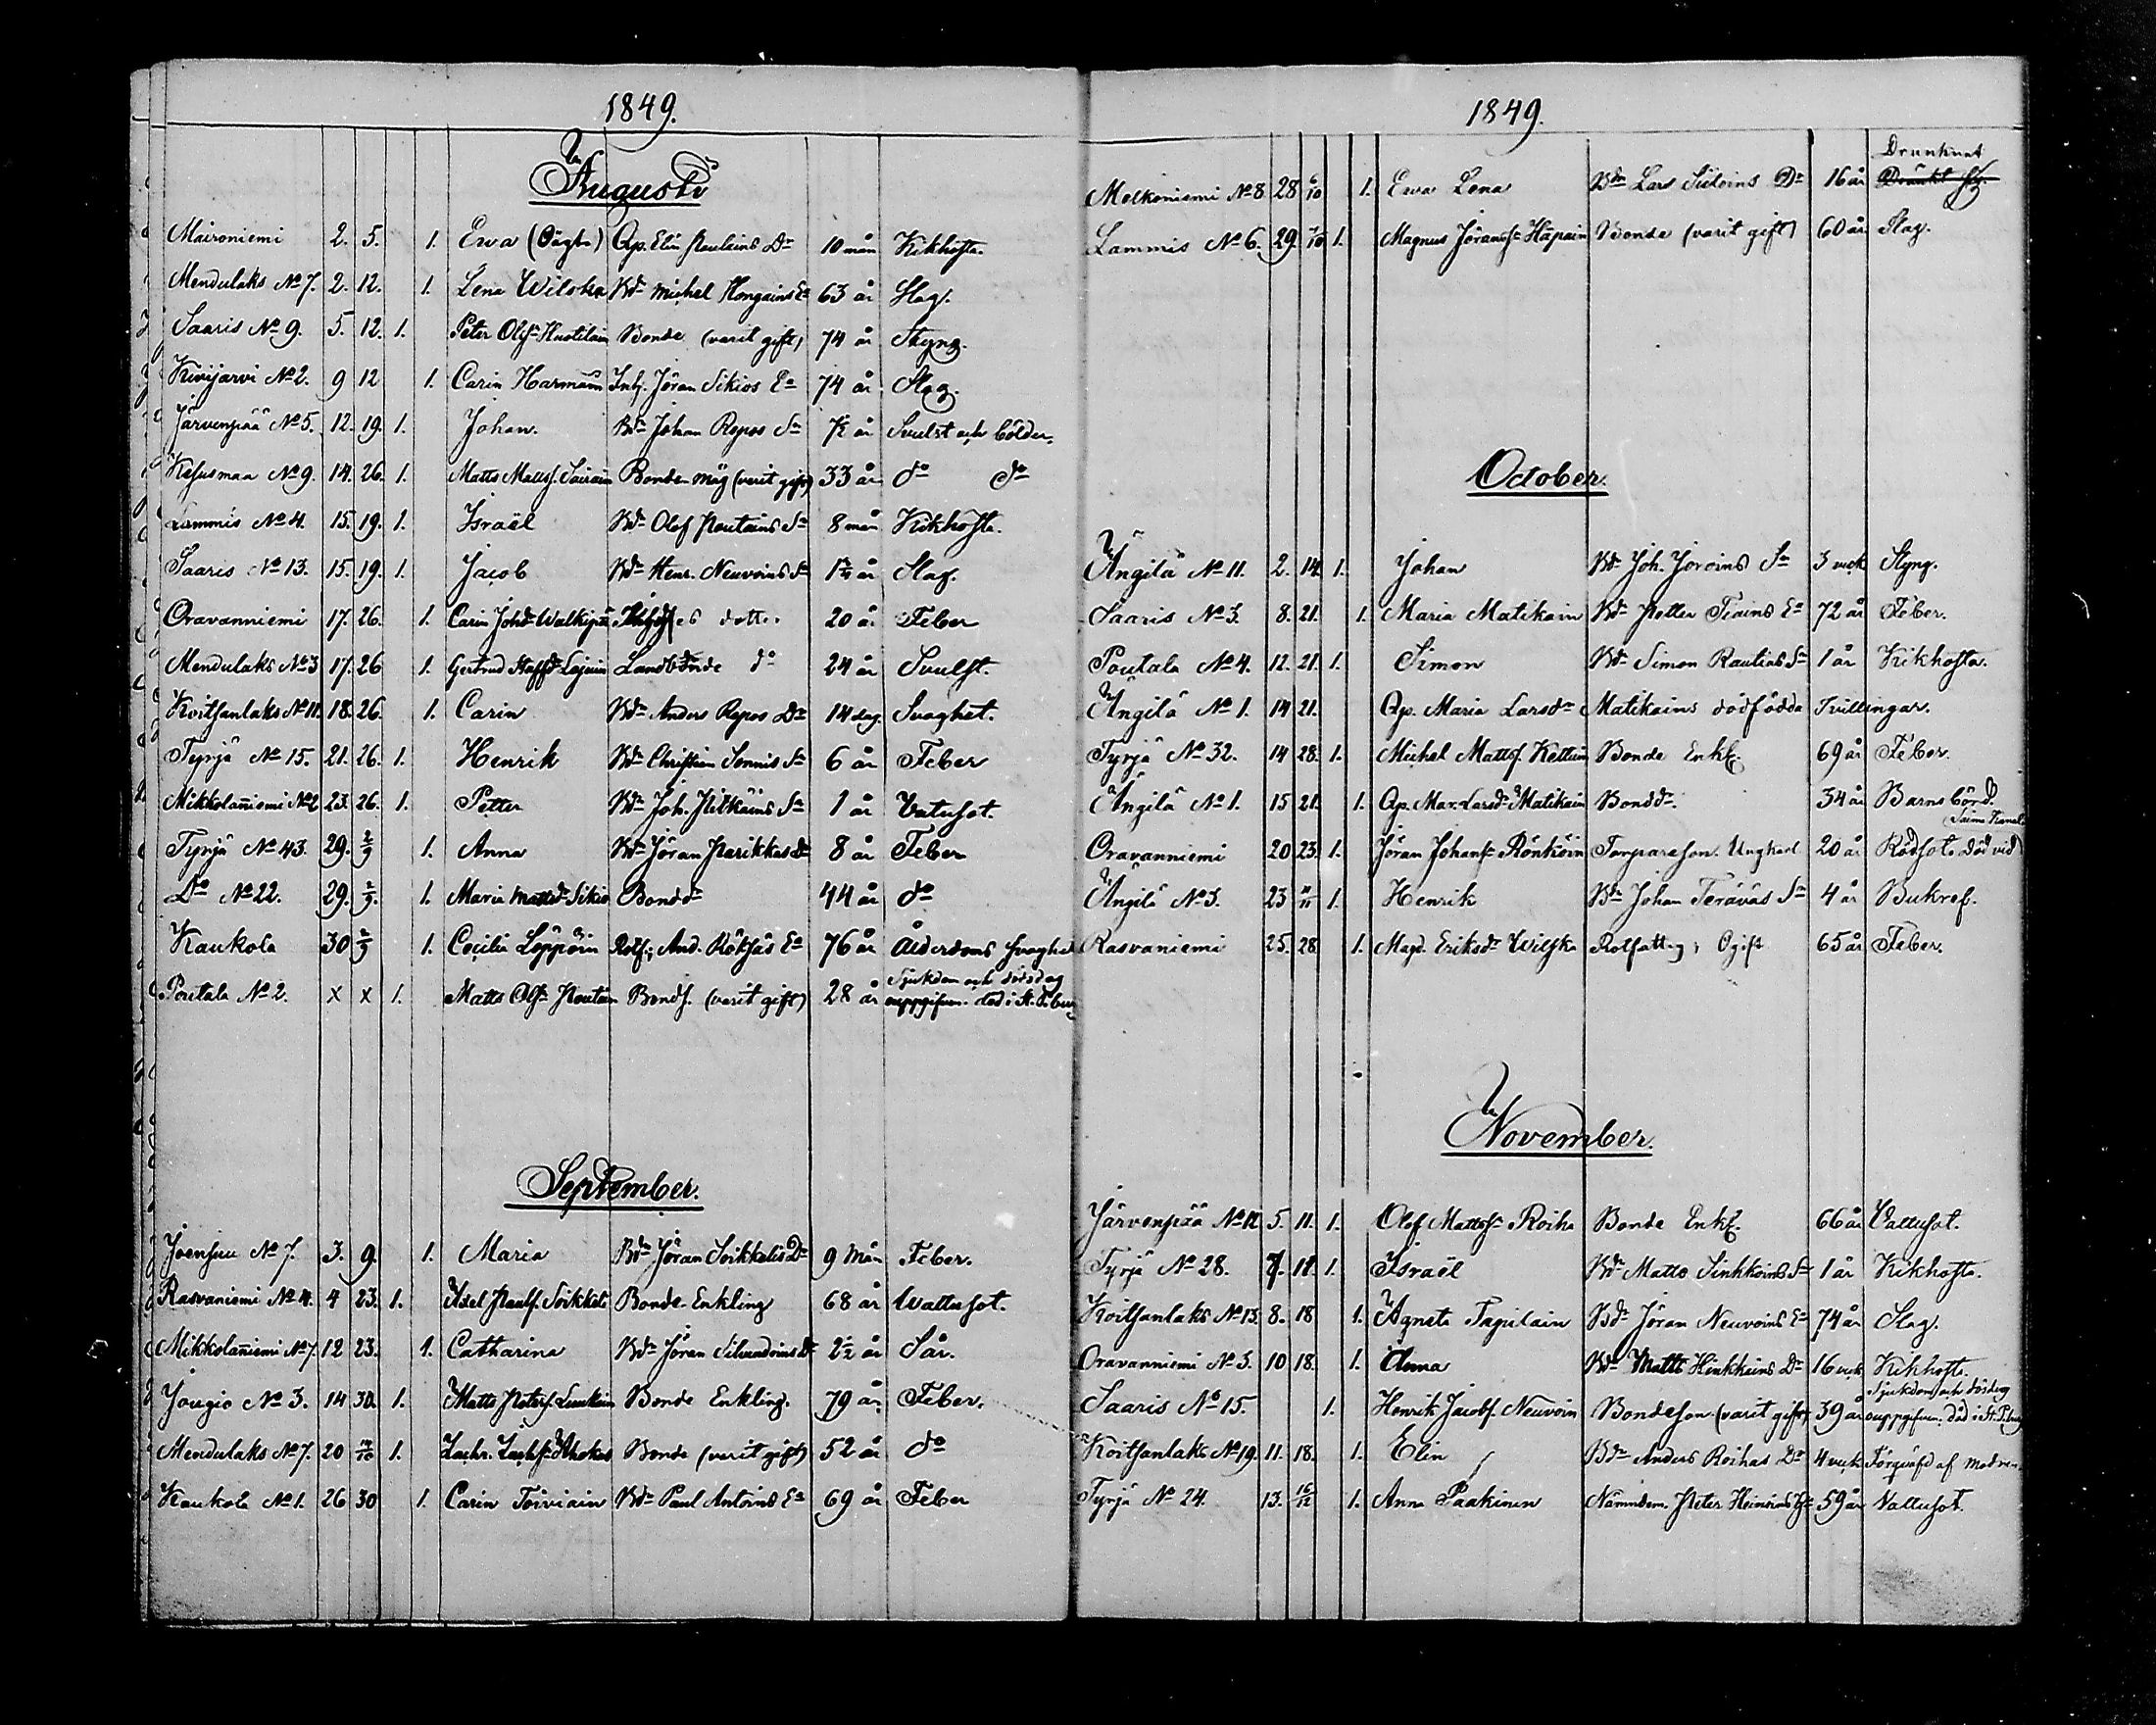 1849.
Augusti
Maironiemi 2. 5. 1. Ewa (Oägta) Qp. Elin Pautains Dr 10 mån Kikhosta.
Mendulaks No 7. 2. 12. 1. Lena Wilska Bdn Michel Kongains Ea 63 år Slag.
Saaris No 9. 5. 12. 1. Peter Olfsn Huotilain Bonde (varit gift) 74 år Styng.
Kivijarvi No 2. 9 12 1. Carin Harmain Inh. Jöran Sikios Ea 74 år Slag.
Järvenpää No 5. 12. 19. 1. Johan. Bdn Johan Repos Sn ½ år Svulst och bölder.
Kesusmaa No 9. 14. 26. 1. Matts Mattsf. Sairain Bonde måg (varit gift) 33 år do do
Lammis No 4. 15. 19. 1. Israël Bdn Olof Pautains Sn 8 mån Kikhosta.
Saaris No 13. 15. 19. 1. Jacob Bdn Henr. Neuvoins Sn 1¼ år Slag.
Oravanniemi 17. 26. 1. Carin Johdr Walkipä dotter 20 år Feber
Mendulaks No 3 17. 26 1. Gertrud Staffdr Lajuin Landbonde do 24 år Svulst.
Koitsanlaks No 11. 18. 26. 1. Carin Bdn Anders Repos Dr 14 dag. Svaghet.
Tyrjä No 15. 21. 26. 1. Henrik Bdn Christian Sonnis Sn 6 år Feber
Mikkolaniemi No 2 23. 26. 1. Petter Bdn Joh. Pitkäins Sn 1 år Vatusot.
Tyrjä No 43. 29. 2/9 1. Anna Bdn Jöran Parikkas Dr 8 år Feber
Do No 22. 29. 2/9. 1. Maria Mattsdr Sikio Bonddr 44 år do
Kaukola 30 2/9 1. Cecilia Leppöin Rotf. And. Rökjäs Ea 76 år Ålderdoms svaghet
Poutala No 2. x x 1. Matts Olfsn Pautain Bondf. (varit gift) 28 år Sjukdom och dödsdag ouppgifven. död i St. P:burg
September.
Joensuu No 7. 3. 9. 1. Maria Bdn Jöran Soikkelis Dr 9 Mån Feber.
Rasvaniemi No 4. 4 23. 1. Axel Paulf. Soikkeli Bonde Enkling 68 år Wattusot.
Mikkolaniemi No 7. 12 23. 1. Catharina Bdn Jöran Silvandoins Dr 2½ år Sår.
Jougio No 3. 14 30. 1. Matts Petersf. Luukain Bonde Enkling. 79 år Feber.
Mendulaks No 7. 20 14/10 1. Zachr. Zachfsn Ahokas Bonde (varit gift) 52 år do
Kaukola No 1. 26 30 1. Carin Toiviain Bdn Paul Antoins Ea 69 år Feber
1849.
Drunknat
Melkoniemi No 8 28 6/10 1. Ewa Lena Bdn Lars Siitoins Dr 16 år Dränkt sig.
Lammis No 6. 29 7/10 1. Magnus Jöransfn Häpäin Bonde (varit gift) 60 år Slag.
October.
Ängilä No 11. 2. 14. 1. Johan Bdn Joh. Joroins Sn 3 veck Styng.
Saaris No 3. 8. 21. 1. Maria Matikain Bdn Petter Tiains Ea 72 år Feber.
Poutala No 4. 12. 21. 1. Simon Bdn Simon Rautias Sn 1 år Kikhosta.
Ängilä No 1. 14 21. Qp. Maria Larsdr Matikains dödfödda Tvillingar.
Tyrjä No 32. 14 28. 1. Michel Mattsf. Kettuin Bonde Enkl. 69 år Feber.
Ängilä No 1. 15 21. 1. Qp. Mar. Larsdr Matikain Bonddr. 34 år Barnsbörd.
Oravanniemi 20 23. 1. Jöran Johansfn Rönköin Torparefon. Ungkarl 20 år Rödsot. död vid Saima Kanal
Ängilä No 3. 23 11/11 1. Henrik Bdn Johan Teräväs Sn 4 år Bukref.
Rasvaniemi 25. 28. 1. Magd. Eriksdr Wilska Rotfattig, Ogift 65 år Feber.
November.
Järvenpää No 12 5. 11. 1. Olof Mattsfn Roiha Bonde Enkl. 66 år Vattusot.
Tyrjä No 28. 7. 11. 1. Israël Bdn Matts Sinkkoins Sn 1 år Kikhosta.
Koitsanlaks No 13. 8. 18 1. Agneta Tapilain Bdn Jöran Neuvoins Ea 74 år Slag.
Oravanniemi No 3. 10 18. 1. Anna Bdn Matts Hinkkains Dr 16 veck Kikhosta.
Saaris No 15. 1. Henrik Jacobf. Neuvoin Bondeson (varit gift) 39 år Sjukdom och dödsdag ouppgifven. död i St. P:burg
Koitsanlaks No 19. 11. 18. 1. Elin Bdn Anders Roihas Dr 4 veck Förqväfd af modren.
Tyrjä No 24. 13. 16/12 1. Anna Paakinen Nämndem. Peter Heinoins H 59 år Vattusot.